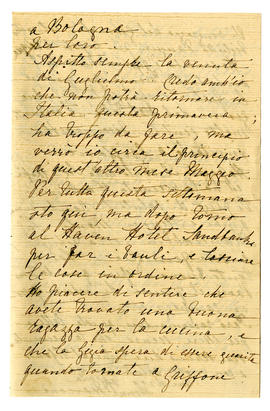 a Bologna
per loro.
Aspetto sempre la venuta
di Guglielmo Credo anch'io
che non potrà ritornare in
Italia questa primavera,
ha troppo da fare, ma
verrò io circa il principio
di quest'altro mese Maggio.
Per tutta questa settimana
sto qui, ma dopo torno
al Haven Hotel Sandbanks
per far i bauli, e lasciare
le cose in ordine
Ho piacere di sentire che
avete trovato una buona
ragazza per la cucina, e
che la Gigia spera di essere guarita
quando tornate a Griffone